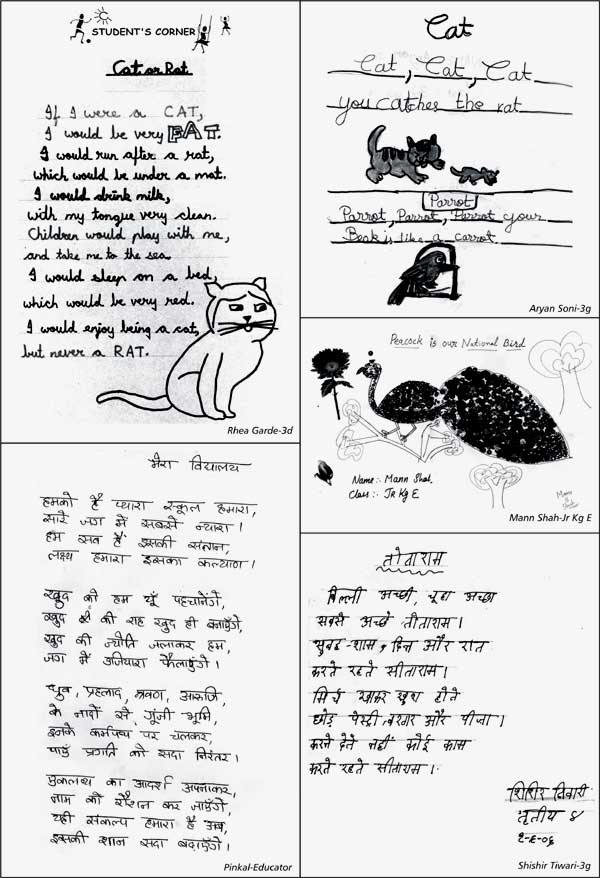 STUDENT'S CORNER
Cat or Rat
If I were a CAT,
I would be very FAT.
I would run after a rat,
which would be under a mat.
I would drink milk,
with my tongue very clean.
Children would play with me,
and take me to the sea.
I would sleep on a bed,
which would be very red.
I would enjoy being a cat,
but never a RAT.
Rhea Garde-3d
Cat
Cat, Cat, Cat
you catches the rat
Parrot
Parrot, Parrot, Parrot your
Beak is like a carrot
Aryan Soni-3g
Peacock is our National Bird
Name:- Mann Shah.
Class:- Jr Kg E
Mann Shah
Mann Shah-Jr Kg E
मेरा विद्यालय
हमको है प्यारा स्कूल हमारा,
सारे जग में सबसे न्यारा।
हम सब हैं इसकी सन्तान,
लक्ष्य हमारा इसका कल्याण।
खुद को हम यूँ पहचानेंगे,
खुद की राह खुद ही बनाएँगे,
खुद की ज्योति जलाकर हम,
जग में उजियारा फैलाएंगे।
ध्रुव, प्रहलाद, श्रवण, आरूणि,
के नादों से गूंजी भूमि,
इनके कर्मपथ पर चलकर,
पाएं प्रगति को सदा निरंतर।
एकलव्य का आदर्श अपनाकर,
नाम को रौशन कर जाएँगे,
यही संकल्प हमारा है अब,
इसकी शान सदा बढ़ाएँगे।
Pinkal-Educator
तोताराम
बिल्ली अच्छी, चूहा अच्छा
सबसे अच्छे तोताराम।
सुबह-शाम, दिन और रात
करते रहते सीताराम।
मिर्च खाकर खुश होते
छोड़ पेस्ट्री, बरगर और पीजा।
करने देते नहीं कोई काम
करते रहते सीताराम।
शिशिर तिवारी
तृतीय
Shishir Tiwari-3g